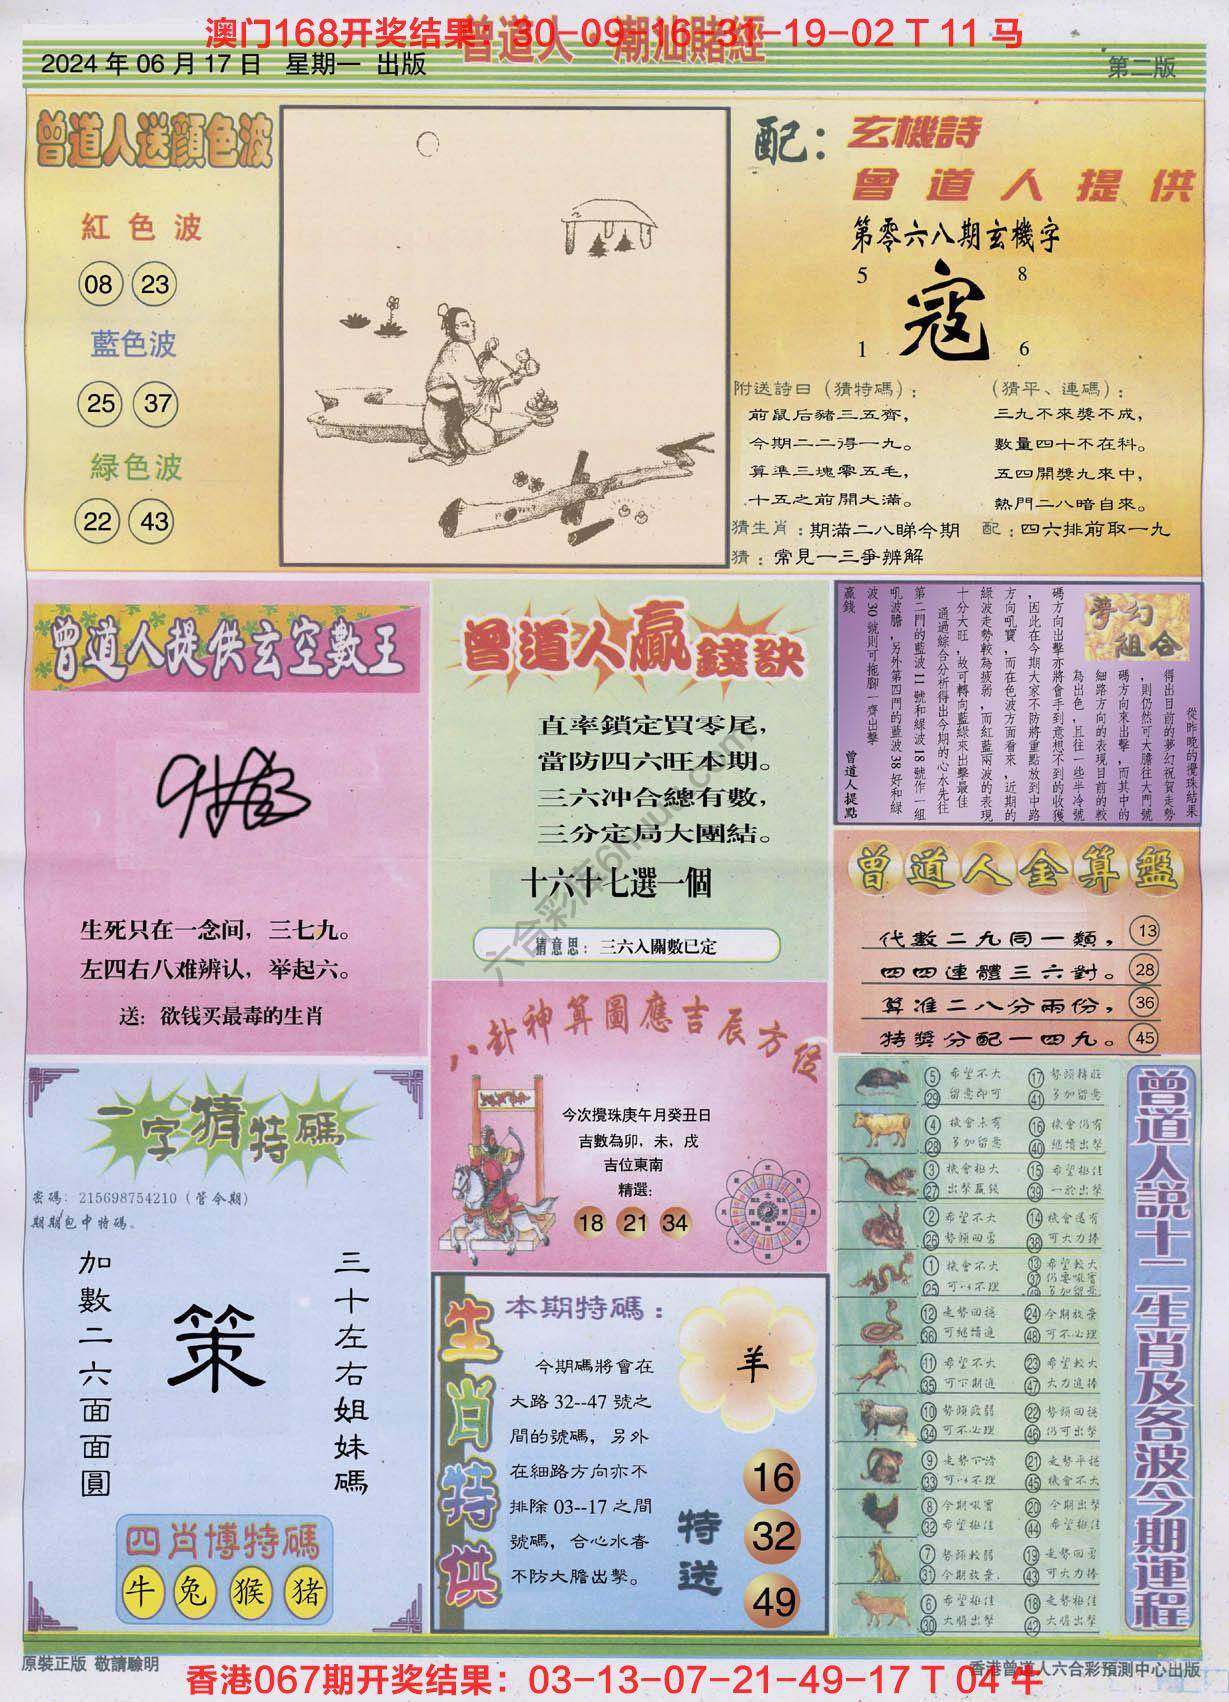 澳门168开奖结果：30-09-16-31-19-02 T 11 马
曾道人·潮汕賭經
2024 年 06 月 17 日 星期一 出版
第二版
曾道人送顏色波
紅 色 波
08 23
藍色波
25 37
緑色波
22 43
配：玄機詩
曾 道 人 提 供
第零六八期玄機字
5 8
寇
1 6
附送詩曰（猜特碼）：
前鼠后豬三五齊，
今期二二得一九。
算準三塊零五毛，
十五之前開大滿。
（猜平、連碼）：
三九不來獎不成，
數量四十不在科。
五四開獎九來中，
熱門二八暗自來。
猜生肖：期滿二八睇今期 配：四六排前取一九
猜：常見一三爭辨解
曾道人提供玄空數王
生死只在一念间，三七九。
左四右八难辨认，举起六。
送：欲钱买最毒的生肖
曾道人贏錢訣
直率鎖定買零尾，
當防四六旺本期。
三六冲合總有數，
三分定局大團結。
十六十七選一個
猜意思：三六入關數已定
六合彩库6huu.com
夢幻
組合
從昨晚的攪珠結果
得出目前的夢幻祝賀走勢
，則仍然可大膽往大門號
碼方向來出擊，而其中的
細路方向的表現目前的較
為出色，且往一些半冷號
碼方向出擊亦將會手到意想不到的收獲
，因此在今期大家不防將重點放到中路
方向吼寶，而在色波方面看來，近期的
綠波走勢較為疲弱，而紅藍兩波的表現
十分大旺，故可轉向藍綠來出擊最佳
通過綜合分析得出今期的心水先往
第二門的藍波 11 號和綠波 18 號作一組
吼波膽，另外第四門的藍波 38 好和綠
波 30 號則可拖腳一齊出擊
贏錢
曾道人提點
曾道人金算盤
代數二九同一類， 13
四四連體三六對。 28
算准二八分兩份， 36
特獎分配一四九。 45
八卦神算圖應吉辰方位
今次攪珠庚午月癸丑日
吉數為卯，未，戌
吉位東南
精選：
18 21 34
一字猜特碼
密碼：215698754210（管今期）
期期包中特碼。
加數二六面面圓
策
三十左右姐妹碼
四肖博特碼
牛 兔 猴 猪
生肖特供
本期特碼：
羊
今期碼將會在
大路 32--47 號之
間的號碼，另外
在細路方向亦不
排除 03--17 之間
號碼，合心水者
不防大膽出擊。
特送
16
32
49
曾道人説十二生肖及各波今期運程
5 希望不大 17 勢頭轉旺
29 留意即可 41 多加留意
4 機會未有 16 機會仍有
28 多加留意 40 繼續出擊
3 機會極大 15 希望極佳
27 出擊贏錢 39 一於出擊
2 希望不大 14 機會還有
26 勢頭回勇 38 可大力捧
1 機會不大 13 希望較大
25 可以不理 37 仍要吼實
49 多加留意
12 走勢回穩 24 今期放棄
36 可繼續追 48 可不必理
11 希望不大 23 希望較大
35 可下期追 47 大力追捧
10 勢頭疲弱 22 勢頭回穩
34 可不必理 46 仍可出擊
9 走勢下滑 21 走勢平穩
33 可以不理 45 機會不大
8 今期吼實 20 今期出擊
32 希望極佳 44 希望極佳
7 勢頭較弱 19 走勢回勇
31 今期放棄. 43 可火力捧
6 希望極佳 18 走勢極佳
30 大膽出擊 42 大膽出擊
原裝正版 敬請驗明
香港曾道人六合彩預測中心出版
香港067期开奖结果：03-13-07-21-49-17 T 04 牛